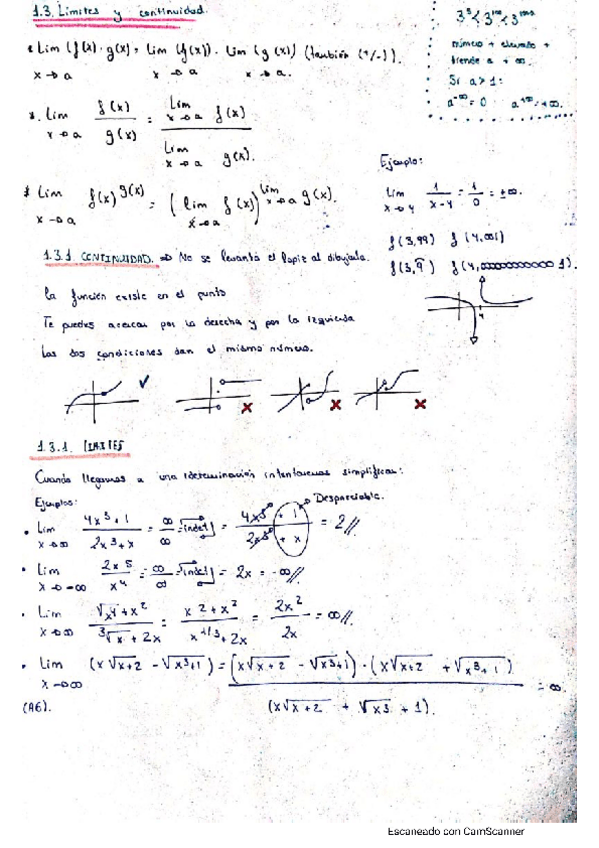 1.3. Límites y continuidad.
3⁵ < 3¹⁰⁰ < 3¹⁰⁰⁰
número + elevado +
tiende a + ∞.
Si a > 1:
a^-∞ = 0 a^+∞ = +∞.
Lim (f(x) · g(x) = Lim (f(x)) · Lim (g(x)) (también (+/-)).
x → a x → a x → a.
Lim f(x) / g(x) = Lim x → a f(x) / Lim x → a g(x).
x → a
Lim f(x)^g(x) = (lim x → a f(x))^lim x → a g(x).
x → a
Ejemplo:
Lim 1/x-4 = 1/0 = ±∞.
x → 4
f(3,99) f(4,001)
f(3,9) f(4,000000000001).
4
1.3.1. CONTINUIDAD. ⇒ No se levanta el lapiz al dibujarla.
La función existe en el punto
Te puedes acercar por la derecha y por la izquierda
Las dos condiciones dan el mismo número.
1.3.1. LIMITES
Cuando llegamos a una ideterminación intentamos simplificar:
Ejemplos:
Despreciable.
Lim 4x³+1 / 2x³+x = ∞/∞ = indet = 4x³ + 1 / 2x³ + x = 2//.
x → ∞
Lim 2x⁵ / x⁴ = ∞/∞ = indet = 2x = -∞//.
x → -∞
Lim √x⁴+x² / ³√x + 2x = x2+x² / x^1/3+2x = 2x² / 2x = ∞//.
x → ∞
Lim (x√x+2 - √x³+1) = (x√x+2 - √x³+1) · (x√x+2 + √x³+1) / (x√x+2 + √x3 + 1). = ∞.
x → ∞
(A6).
Escaneado con CamScanner